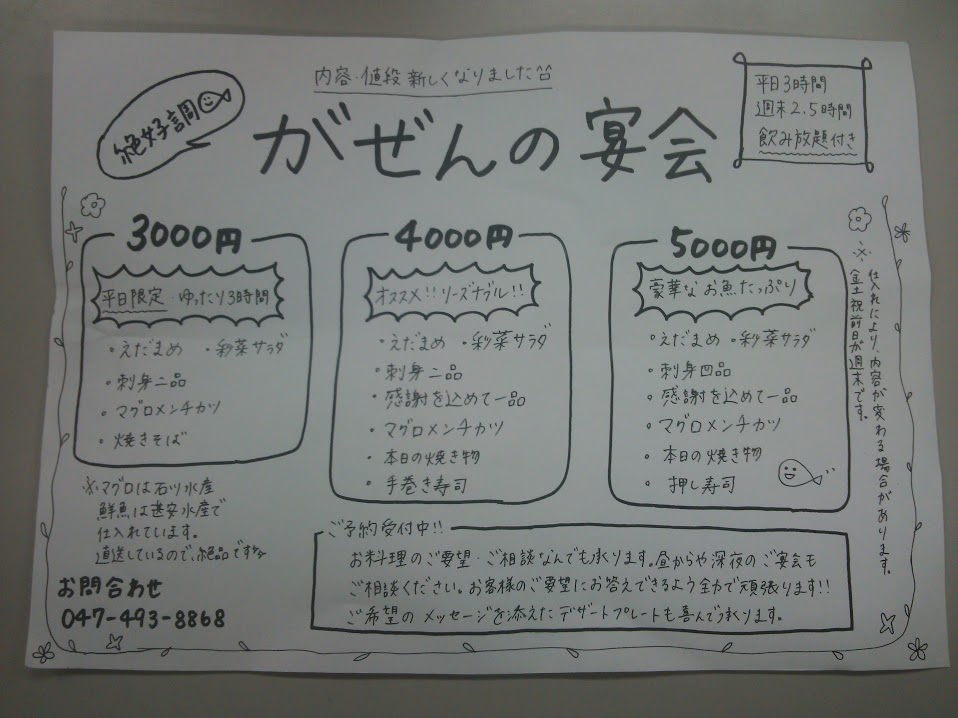 内容・値段 新しくなりました^^
絶好調
がぜんの宴会
平日3時間
週末2.5時間
飲み放題付き
3000円
平日限定・ゆったり3時間
・えだまめ ・彩菜サラダ
・刺身二品
・マグロメンチカツ
・焼きそば
4000円
オススメ!!リーズナブル!!
・えだまめ ・彩菜サラダ
・刺身二品
・感謝を込めて一品
・マグロメンチカツ
・本日の焼き物
・手巻き寿司
5000円
豪華なお魚たっぷり
・えだまめ ・彩菜サラダ
・刺身四品
・感謝を込めて一品
・マグロメンチカツ
・本日の焼き物
・押し寿司
※仕入れにより、内容が変わる場合があります。
金土祝前日が週末です。
※マグロは石ツ水産
鮮魚は甚安水産で
仕入れています。
直送しているので、絶品です
お問合わせ
047-493-8868
ご予約受付中!!
お料理のご要望・ご相談なんでも承ります。昼からや深夜のご宴会も
ご相談ください。お客様のご要望にお答えできるよう全力で頑張ります!!
ご希望のメッセージを添えたデザートプレートも喜んで承ります。